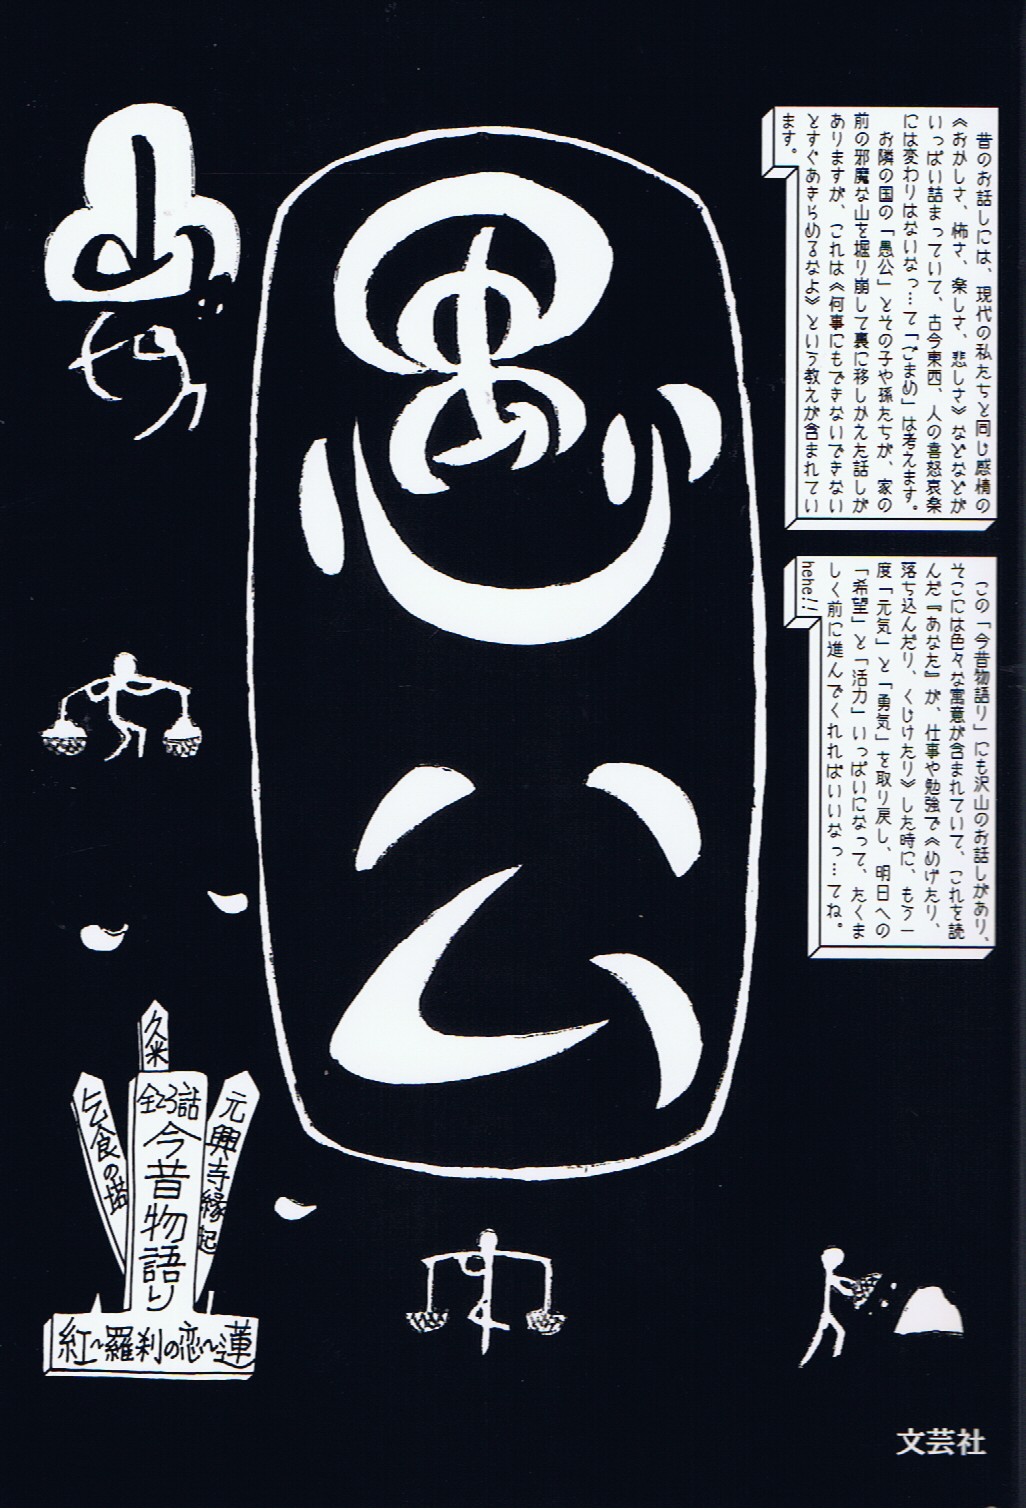 昔のお話しには、現代の私たちと同じ感情の
《おかしさ、怖さ、楽しさ、悲しさ》などなどが
いっぱい詰まっていて、古今東西、人の喜怒哀楽
には変わりはないなっ…て「ごまめ」は考えます。
お隣の国の「愚公」とその子や孫たちが、家の
前の邪魔な山を掘り崩して裏に移しかえた話しが
ありますが、これは《何事にもできないできない
とすぐあきらめるなよ》という教えが含まれてい
ます。
この「今昔物語り」にも沢山のお話しがあり、
そこには色々な寓意が含まれていて、これを読
んだ『あなた』が、仕事や勉強で《めげたり、
落ち込んだり、くじけたり》した時に、もう一
度「元気」と「勇気」を取り戻し、明日への
「希望」と「活力」いっぱいになって、たくま
しく前に進んでくれればいいなっ…てね。
hehe!!
愚公
山
久米
元興寺縁起
全23話
今昔物語り
乞食の塔
紅〜羅刹の恋〜蓮
文芸社